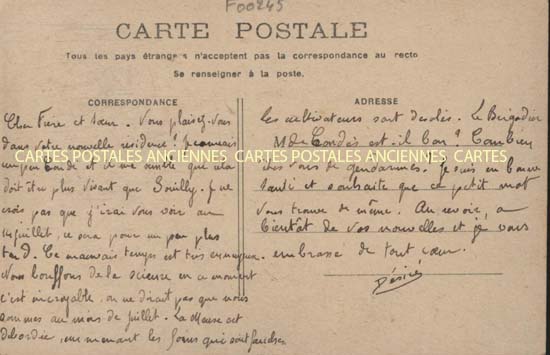 F00245
CARTE POSTALE
Tous les pays étrangers n'acceptent pas la correspondance au recto
Se renseigner à la poste.
CORRESPONDANCE
Cher Frère et sœur. Vous plaisez-vous
dans votre nouvelle résidence? Je connais
un peu Condé et il me semble que cela
doit être plus vivant que Souilly. Je ne
crois pas que j'irai vous voir au
juillet, ce sera pour un peu plus
tard. Ce mauvais temps est très ennuyeux.
Nous bouffons de la
en ce moment
c'est incroyable, on ne dirait pas que nous
sommes au mois de juillet. La Meuse est
débordée, emmenant les foins qui sont fauchés
ADRESSE
les cultivateurs sont désolés. Le Brigadier
M de Condé est-il bon? Combien
êtes vous de gendarmes. Je suis en bonne
santé et souhaite que ce petit mot
vous trouve de même. Au revoir, à
bientôt de vos nouvelles et je vous
embrasse de tout cœur.
Désiré
CARTES POSTALES ANCIENNES CARTES POSTALES ANCIENNES CARTES